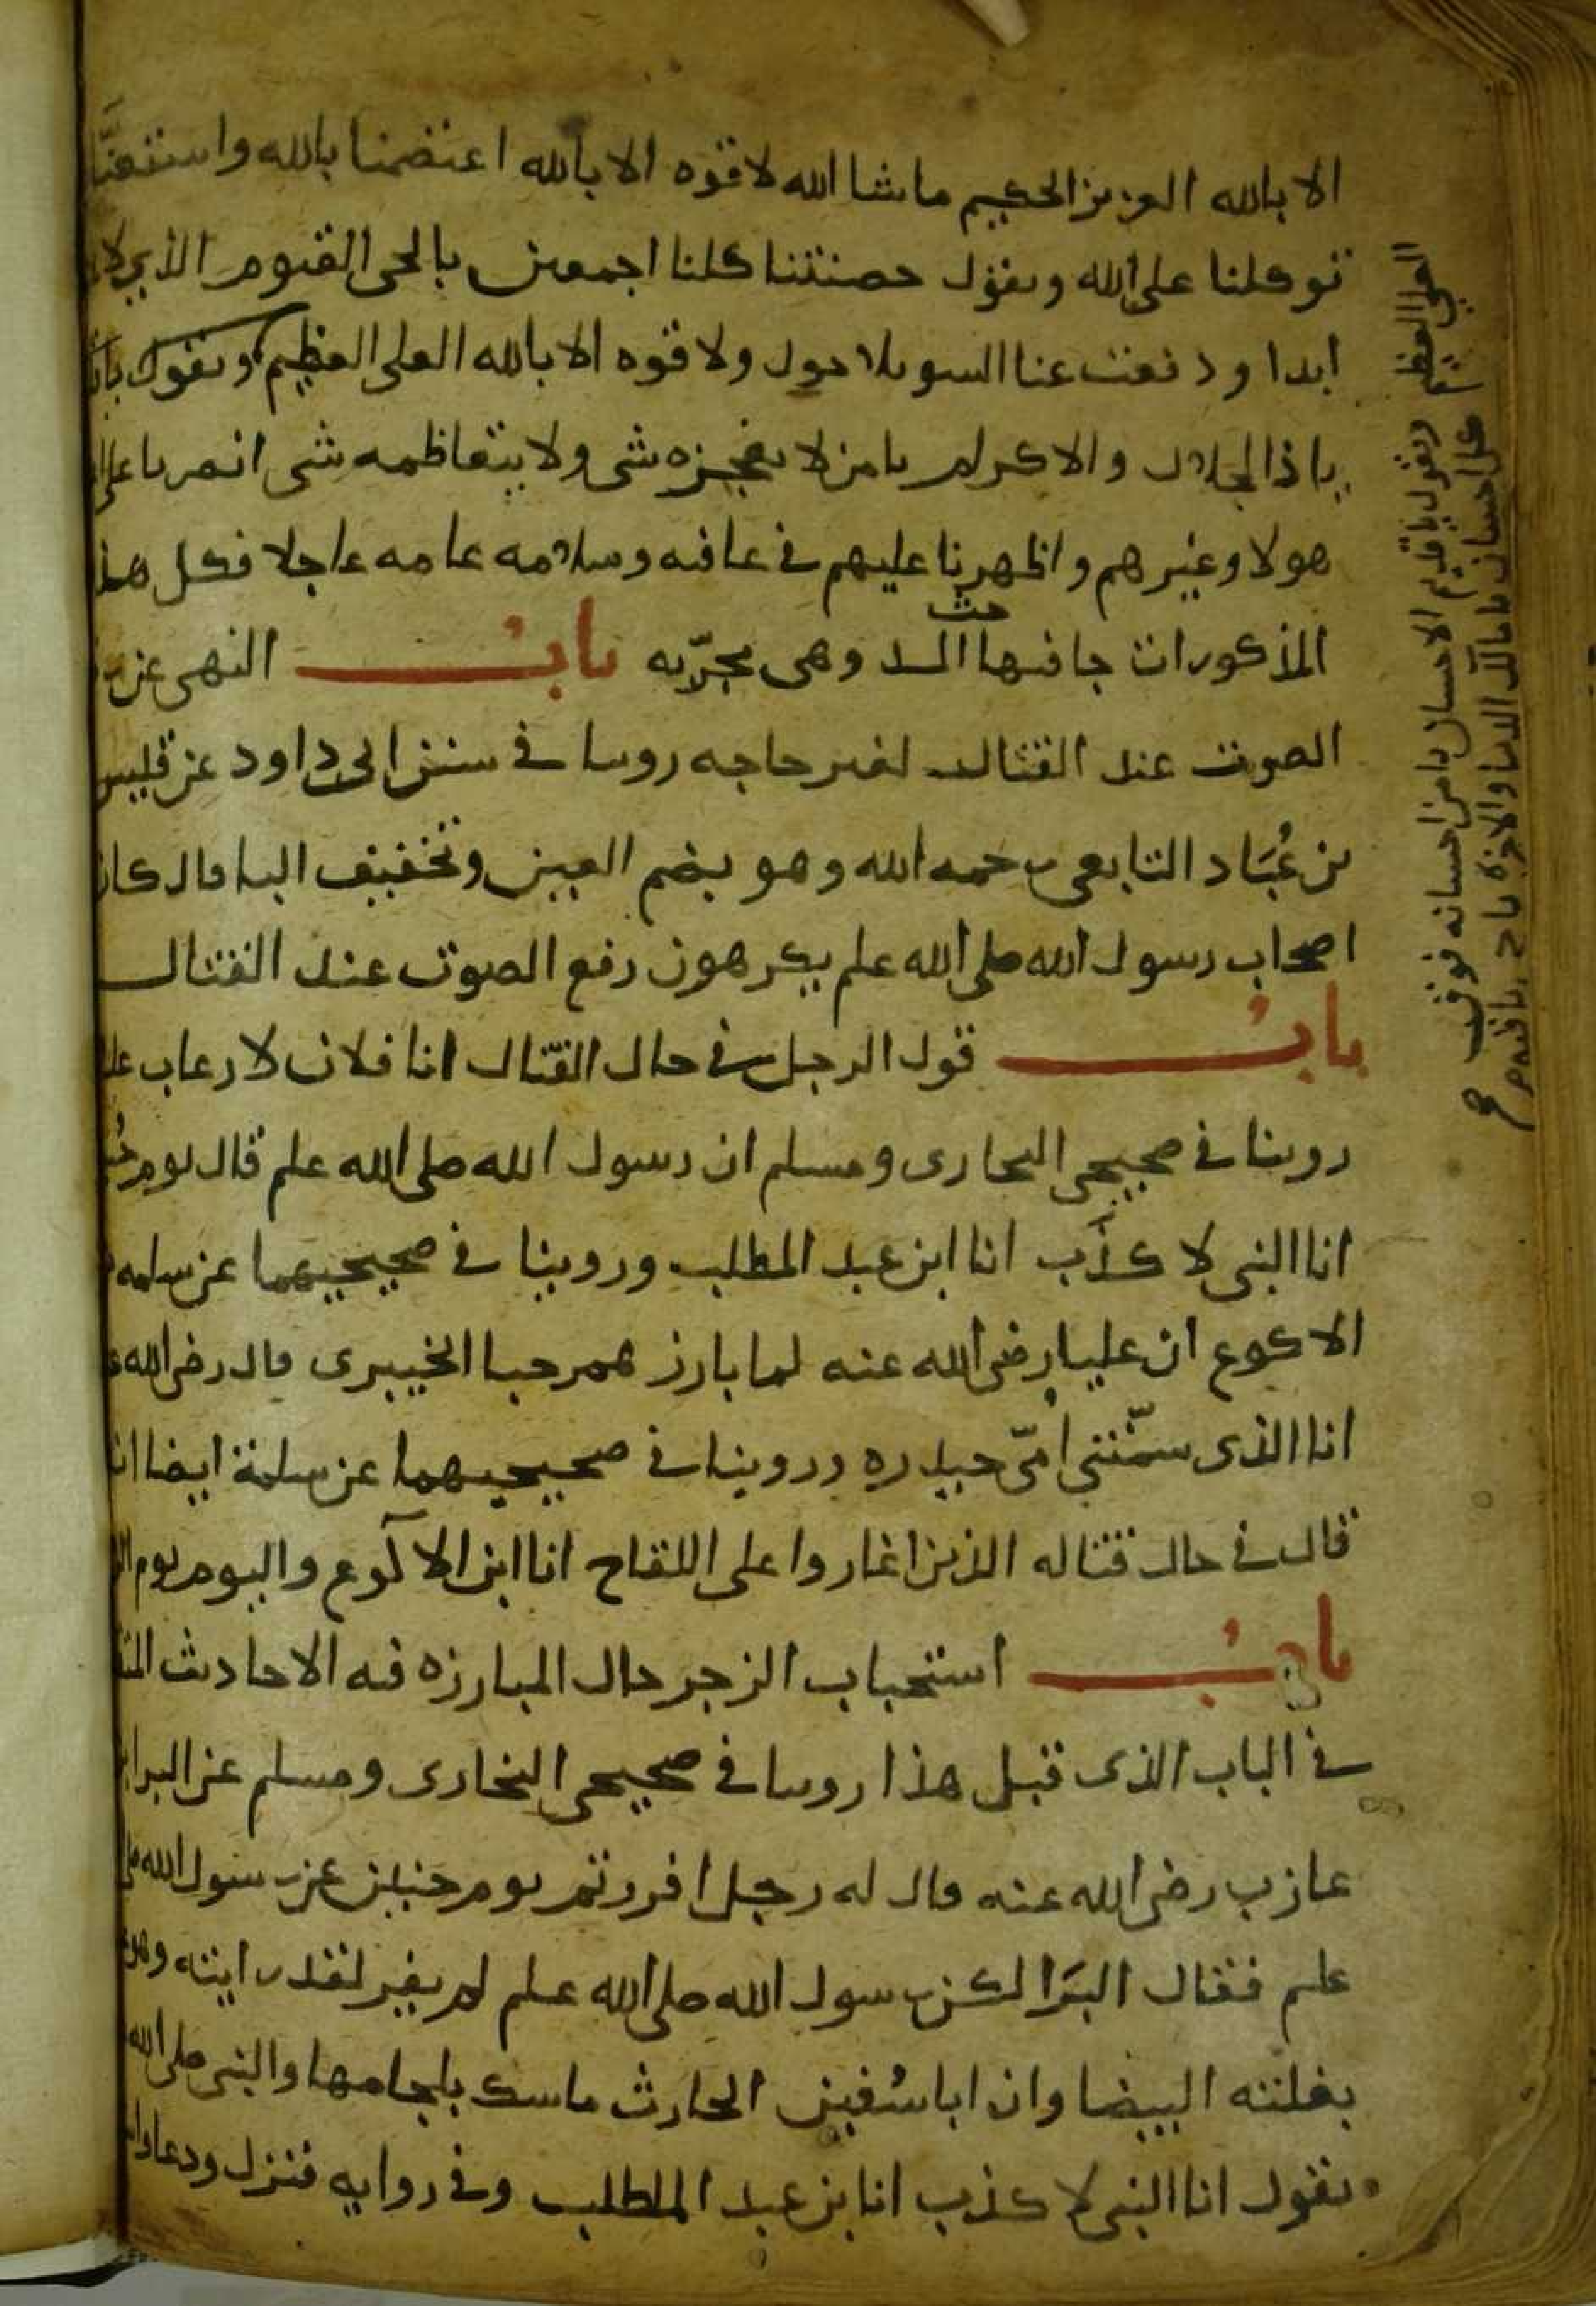 الا بالله العزيز الحكيم ماشا الله لا قوه الا بالله اعتصمنا بالله واستعنا
توكلنا على الله ويقول حصنتنا كلنا اجمعين بالحى القيوم الذي لا
ابدا ودفعت عنا السو بلا حول ولا قوه الا بالله العلى العظيم ويقول
يا ذا الجلال والاكرام يا من لا يعجزه شى ولا يتعاظمه شى انصرنا على
هولا وغيرهم واظهرنا عليهم في عافيه وسلامه عامه عاجلا فكل هذ
المذكورات جا فيها الـ حث وهى مجرّبه باب النهى عن
الصوت عند القتال لغير حاجه روينا في سنن ابى داود عن قيس
بن عُبَاد التابعى رحمه الله وهو بضم العين وتخفيف البا قال كان
اصحاب رسول الله صلى الله علم يكرهون رفع الصوت عند القتال
باب قول الرجل في حال القتال انا فلان لارعاب
روينا في صحيحى البخارى ومسلم ان رسول الله صلى الله علم قال يوم
انا النبى لا كذب انا ابن عبد المطلب وروينا في صحيحيهما عن سلمه
الاكوع ان عليا رضى الله عنه لما بارز مرحبا الخيبرى قال رضى الله
انا الذى سمّتنى اُمّى حيدره وروينا في صحيحيهما عن سلمة ايضا
قال في حال قتاله الذين اغاروا على اللقاح انا ابن الاكوع واليوم يوم
باب استحباب الزجر حال المبارزه فيه الاحاديث
في الباب الذى قبل هذا روينا في صحيحى البخارى ومسلم عن البرا
عازب رضى الله عنه قال له رجل افررتم يوم حنين عن رسول الله
علم فقال البَرا لكن رسول الله صلى الله علم لم يفر لقد رايته
بغلته البيضا وان ابا سُفين الحارث ماسك بلجامها والنبى صلى الله
يقول انا النبى لا كذب انا بن عبد المطلب وفي روايه فنزل ودعا
العلي العظيم ويقول يا قديم الاحسان يا من احسانه فوق
كل احسان يا مالك الدنيا والاخره يا حي يا قيوم